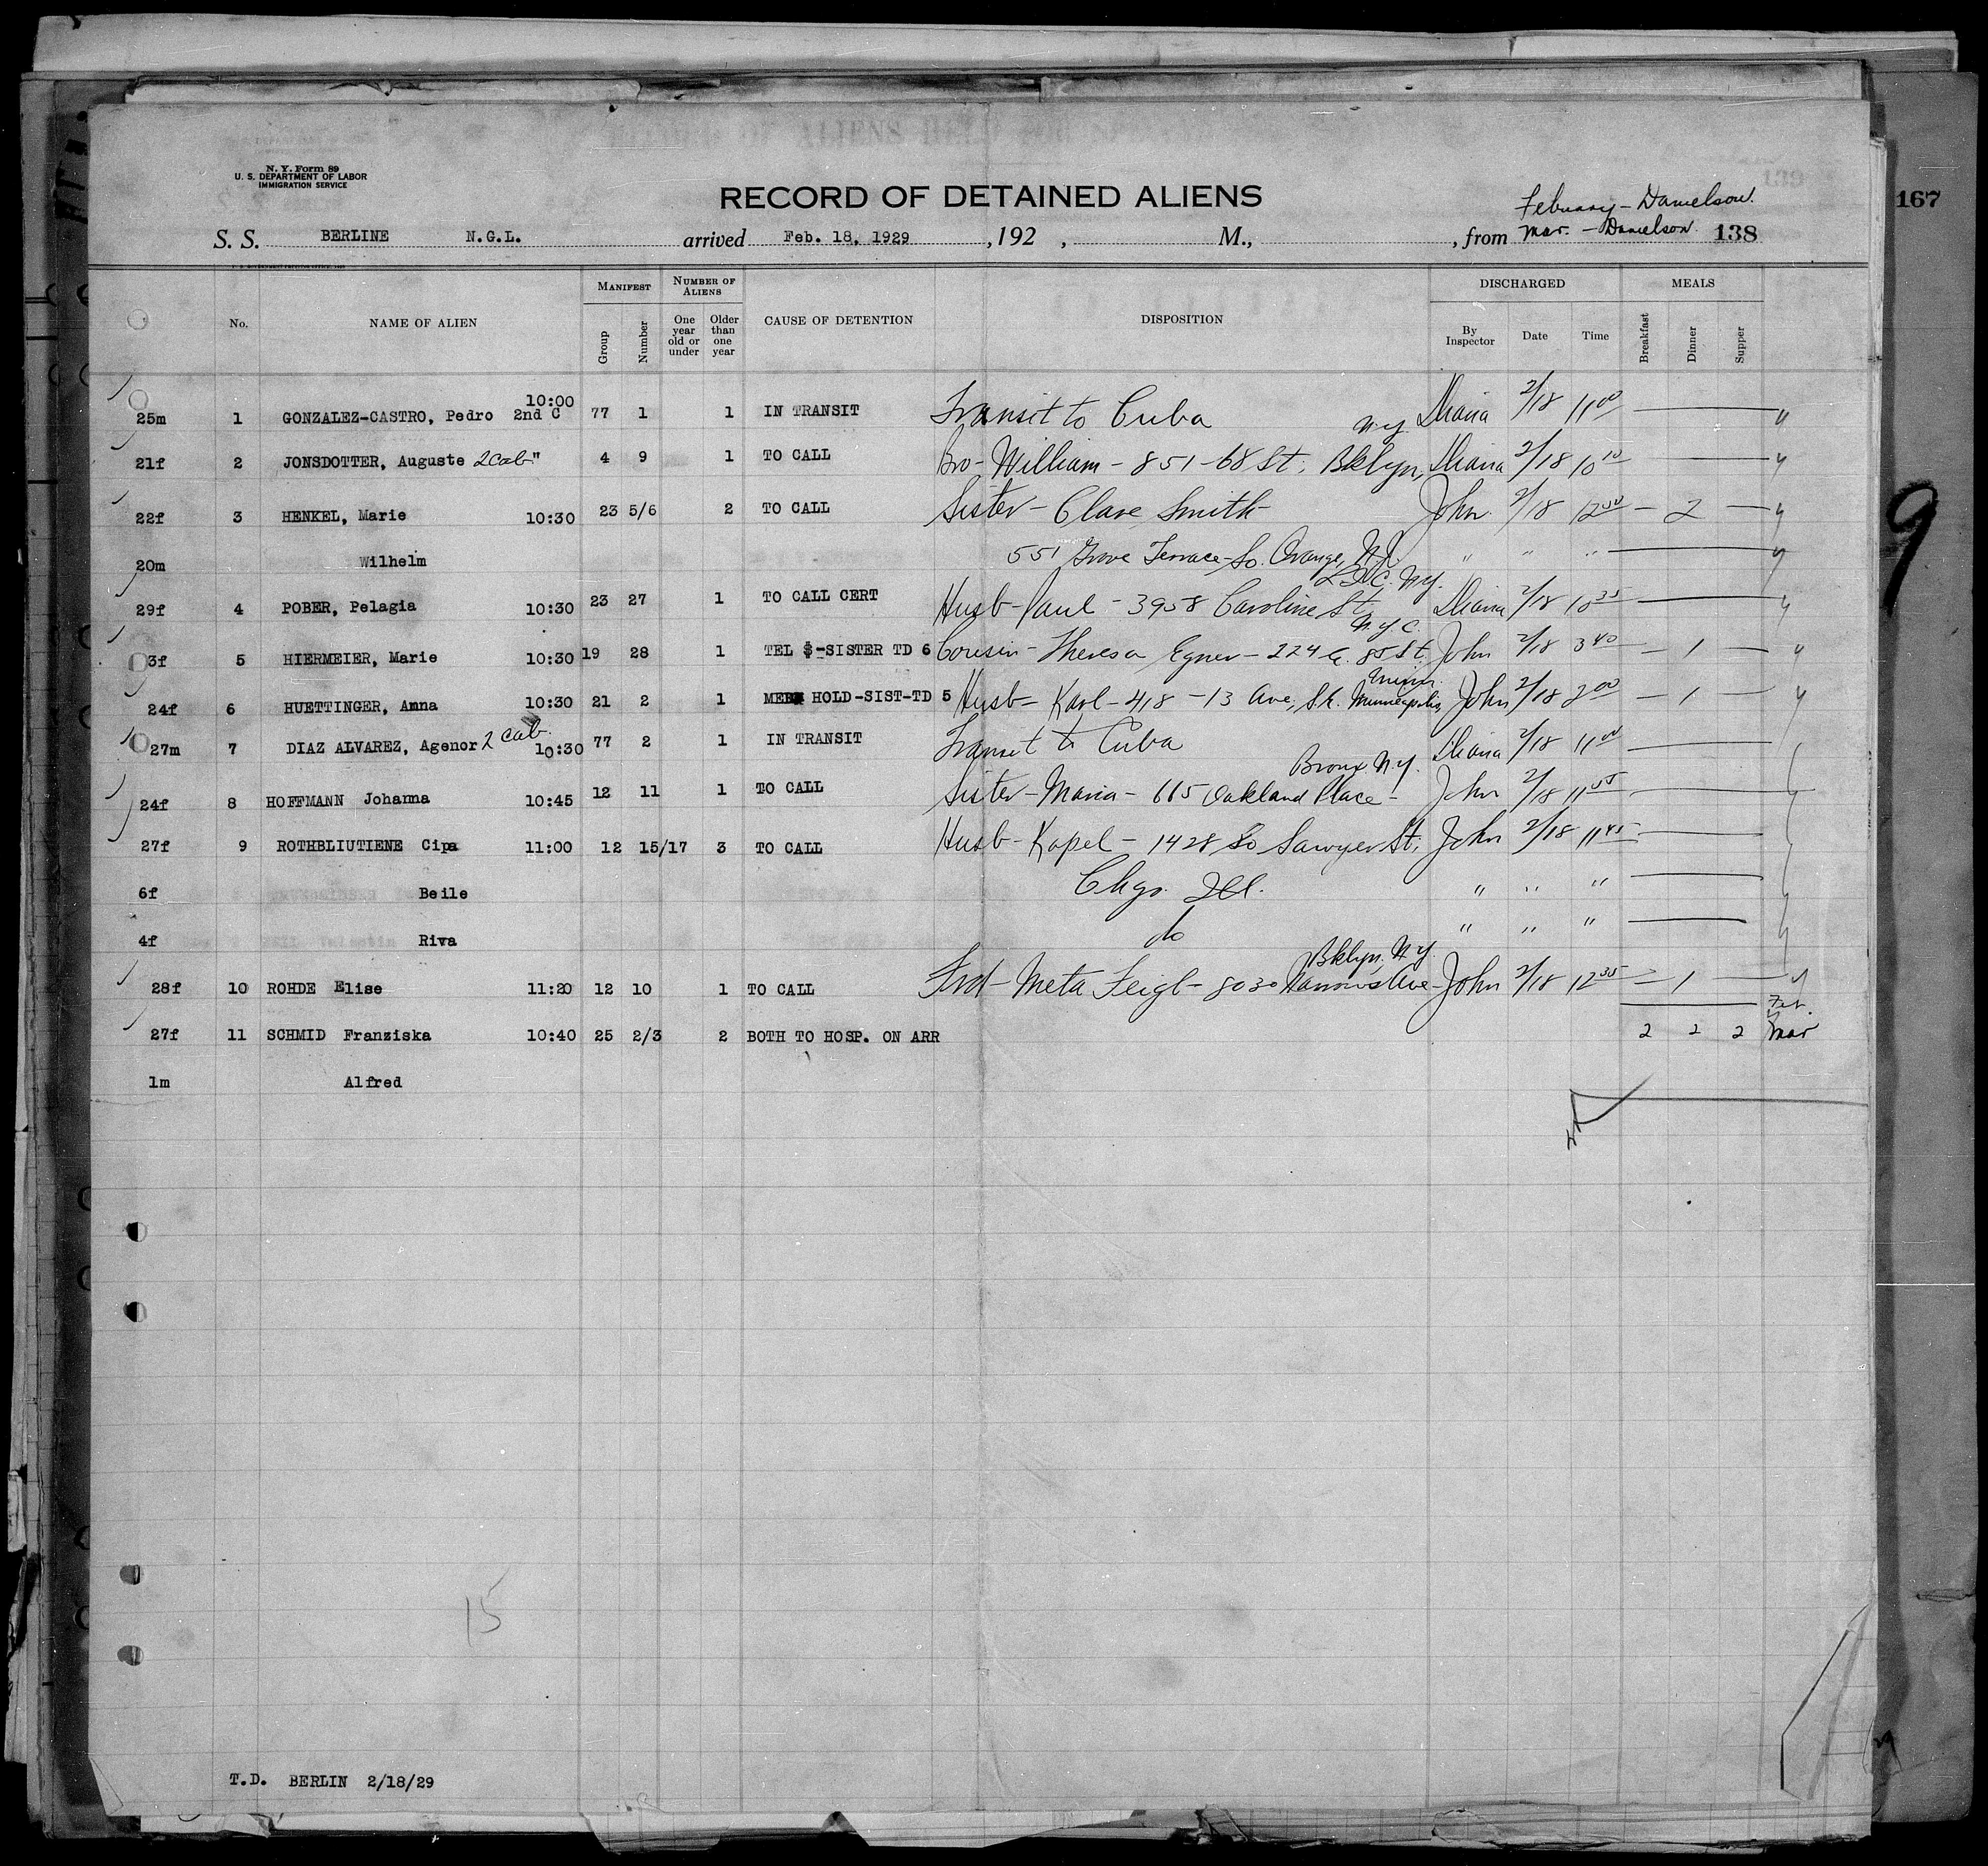 N. Y. Form 89
U. S. DEPARTMENT OF LABOR
IMMIGRATION SERVICE
RECORD OF DETAINED ALIENS
February - Danielson.
167
S. S. BERLINE N.G.L. arrived Feb. 18, 1929 ,192 , M., , from Mar. - Danielson 138
No. NAME OF ALIEN MANIFEST Group Number NUMBER OF ALIENS One year old or under Older than one year CAUSE OF DETENTION DISPOSITION DISCHARGED By Inspector Date Time MEALS Breakfast Dinner Supper
25m 1 GONZALEZ-CASTRO, Pedro 2nd C 10:00 77 1 1 IN TRANSIT Transit to Cuba 2/18 11 00
21f 2 JONSDOTTER, Auguste 2 Cab " 4 9 1 TO CALL Bro - William - 851 - 68 St. Bklyn, N.Y. 2/18 10 10
22f 3 HENKEL, Marie 10:30 23 5/6 2 TO CALL Sister - Clare Smith John 2/18 12 00 - 2 -
20m Wilhelm 551 Grove Terrace - So. Orange, N.J. " " "
29f 4 POBER, Pelagia 10:30 23 27 1 TO CALL CERT Husb - Paul - 3958 Caroline St. L.I.C. N.Y. 2/18 10 35
3f 5 HIERMEIER, Marie 10:30 19 28 1 TEL $-SISTER TD 6 Cousin - Theresa Egner - 224 E. 85 St. N.Y.C. John 2/18 3 40 - 1 -
24f 6 HUETTINGER, Anna 10:30 21 2 1 HOLD-SIST-TD 5 Husb - Karl - 418 - 13 Ave, S.E. Minneapolis, Minn. John 2/18 2 00 - 1 -
27m 7 DIAZ ALVAREZ, Agenor 2 Cab. 10:30 77 2 1 IN TRANSIT Transit to Cuba 2/18 11 00
24f 8 HOFFMANN Johanna 10:45 12 11 1 TO CALL Sister - Maria - 665 Oakland Place - Bronx N.Y. John 2/18 11 55
27f 9 ROTHBLIUTIENE Cipa 11:00 12 15/17 3 TO CALL Husb - Kopel - 1428 So Sawyer St, John 2/18 11 45
6f Beile Chgo. Ill. " " "
4f Riva do " " "
28f 10 ROHDE Elise 11:20 12 10 1 TO CALL Frd - Meta Feigl - 8030 Narrows Ave - Bklyn, N.Y. John 2/18 12 35 - 1 -
Feb.
27f 11 SCHMID Franziska 10:40 25 2/3 2 BOTH TO HOSP. ON ARR 2 2 2 Mar
1m Alfred
9
15
T.D. BERLIN 2/18/29